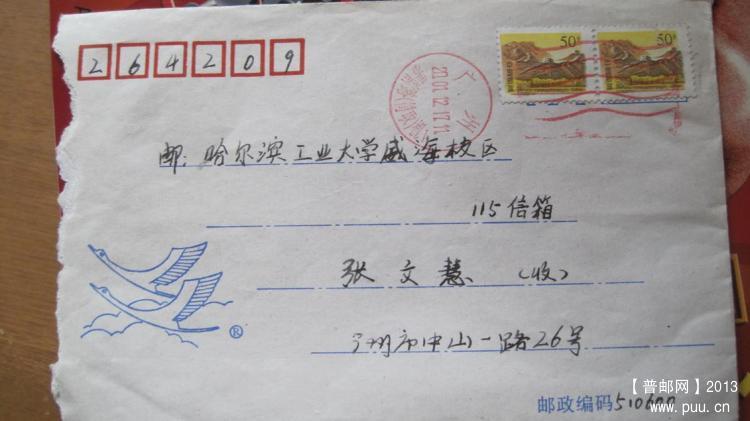 264209
50
50
广州
邮：哈尔滨工业大学威海校区
115信箱
张文慧（收）
广州市中山一路26号
®
邮政编码510600
【普邮网】2013
www.puu.cn